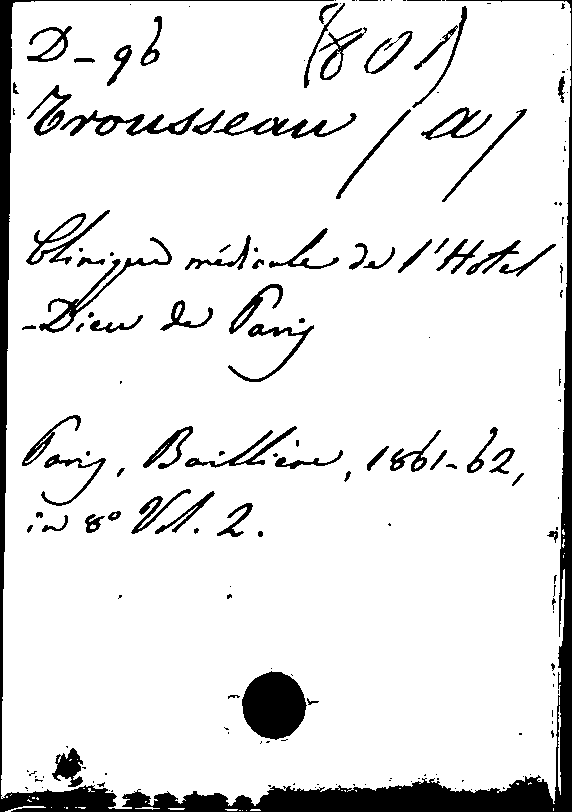 D-96 (801)
Trousseau (A)
Clinique médicale de l'Hotel
-Dieu de Paris
Paris, Baillière, 1861-62,
in 8° Vol. 2.